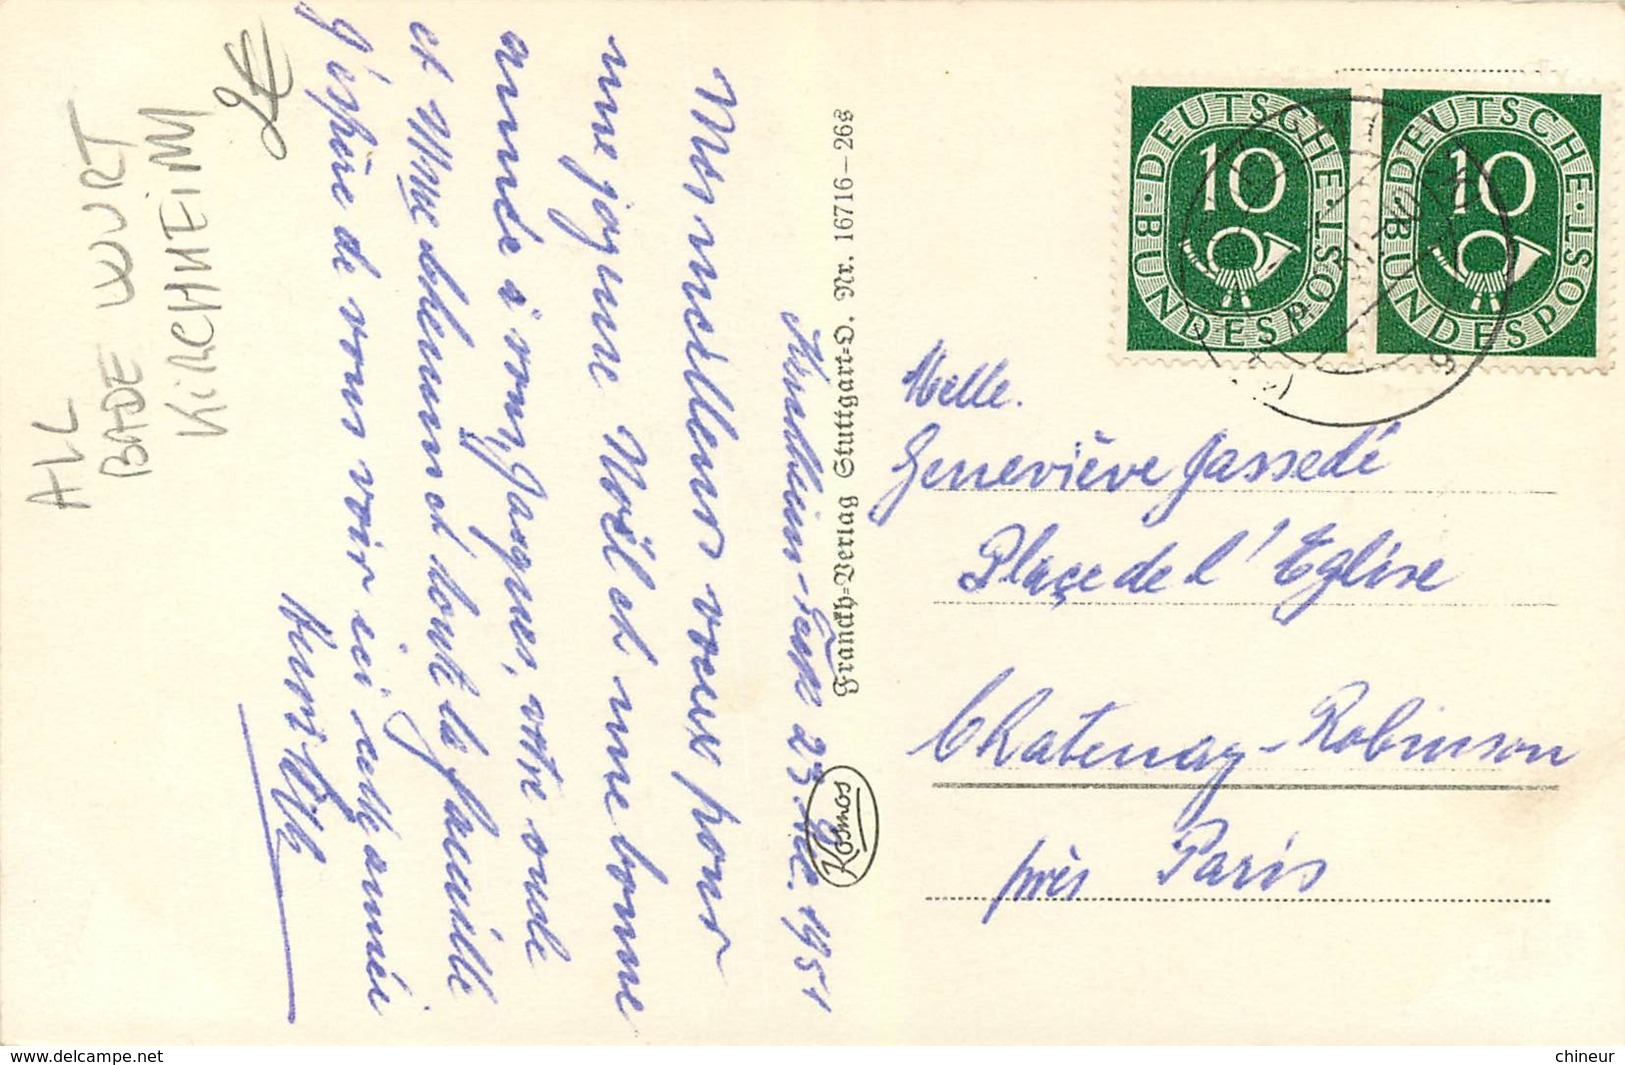 ALL
BADE WURT
KIRCHHEIM
2€
Kirchheim-Teck 23 1951
Mes meilleurs voeux pour
une joyeuse Noël et une bonne
année à vous, Jacques, votre oncle
et Mme blemm et toute la famille
J'éspère de vous voir ici cette année
Franckh-Verlag Stuttgart-O. Nr. 16716-26s
Kosmos
DEUTSCHE BUNDESPOST
10
DEUTSCHE BUNDESPOST
10
Melle.
Geneviève Jassedé
Plaçe de l'Eglise
Chatenay-Robinson
près Paris
www.delcampe.net
chineur